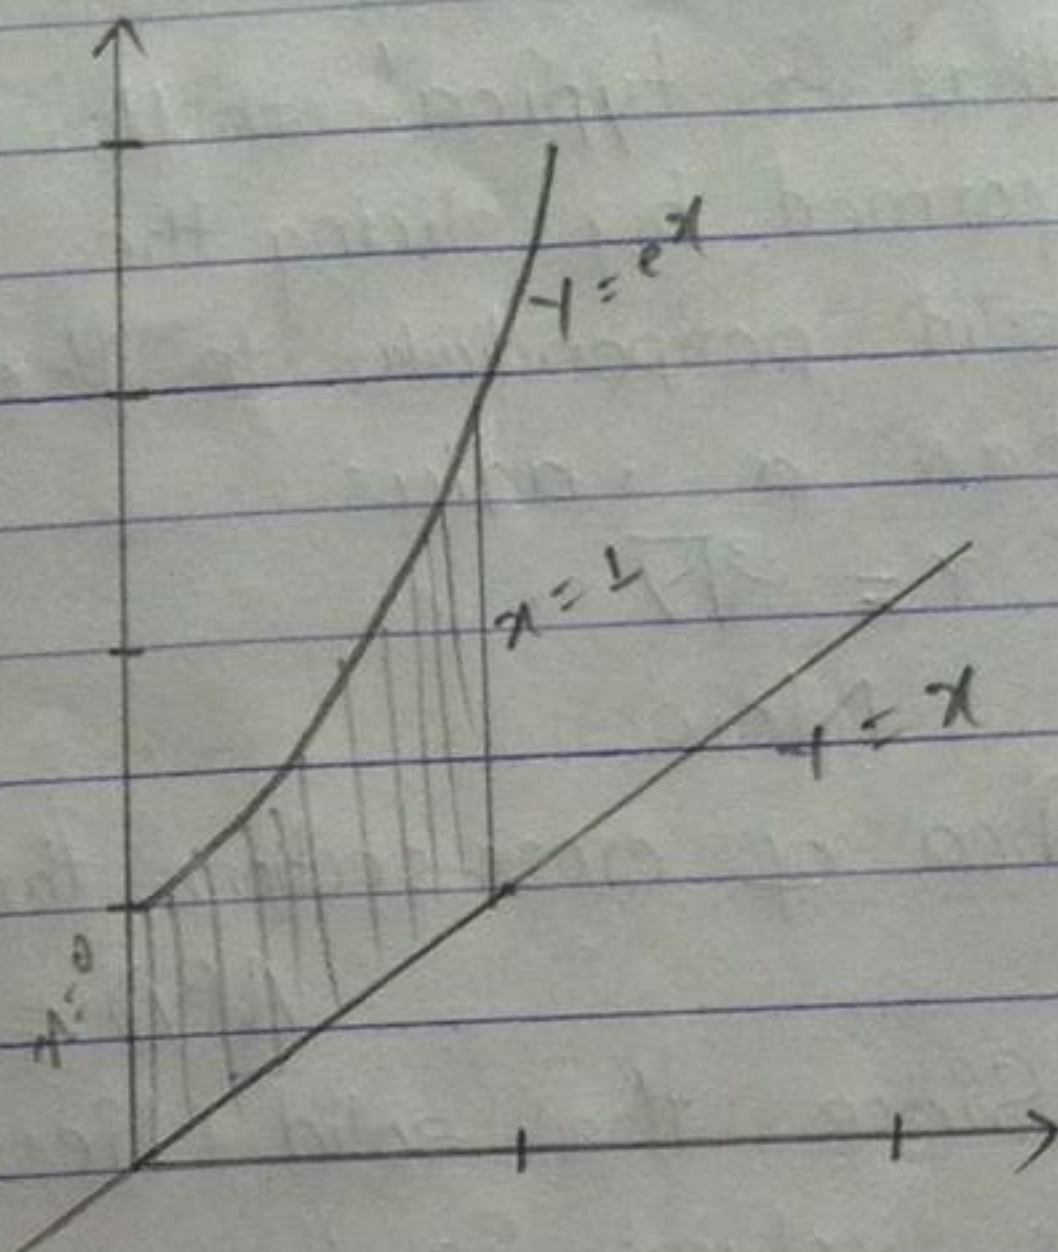 y = e^x
x = 1
y = x
x = 0